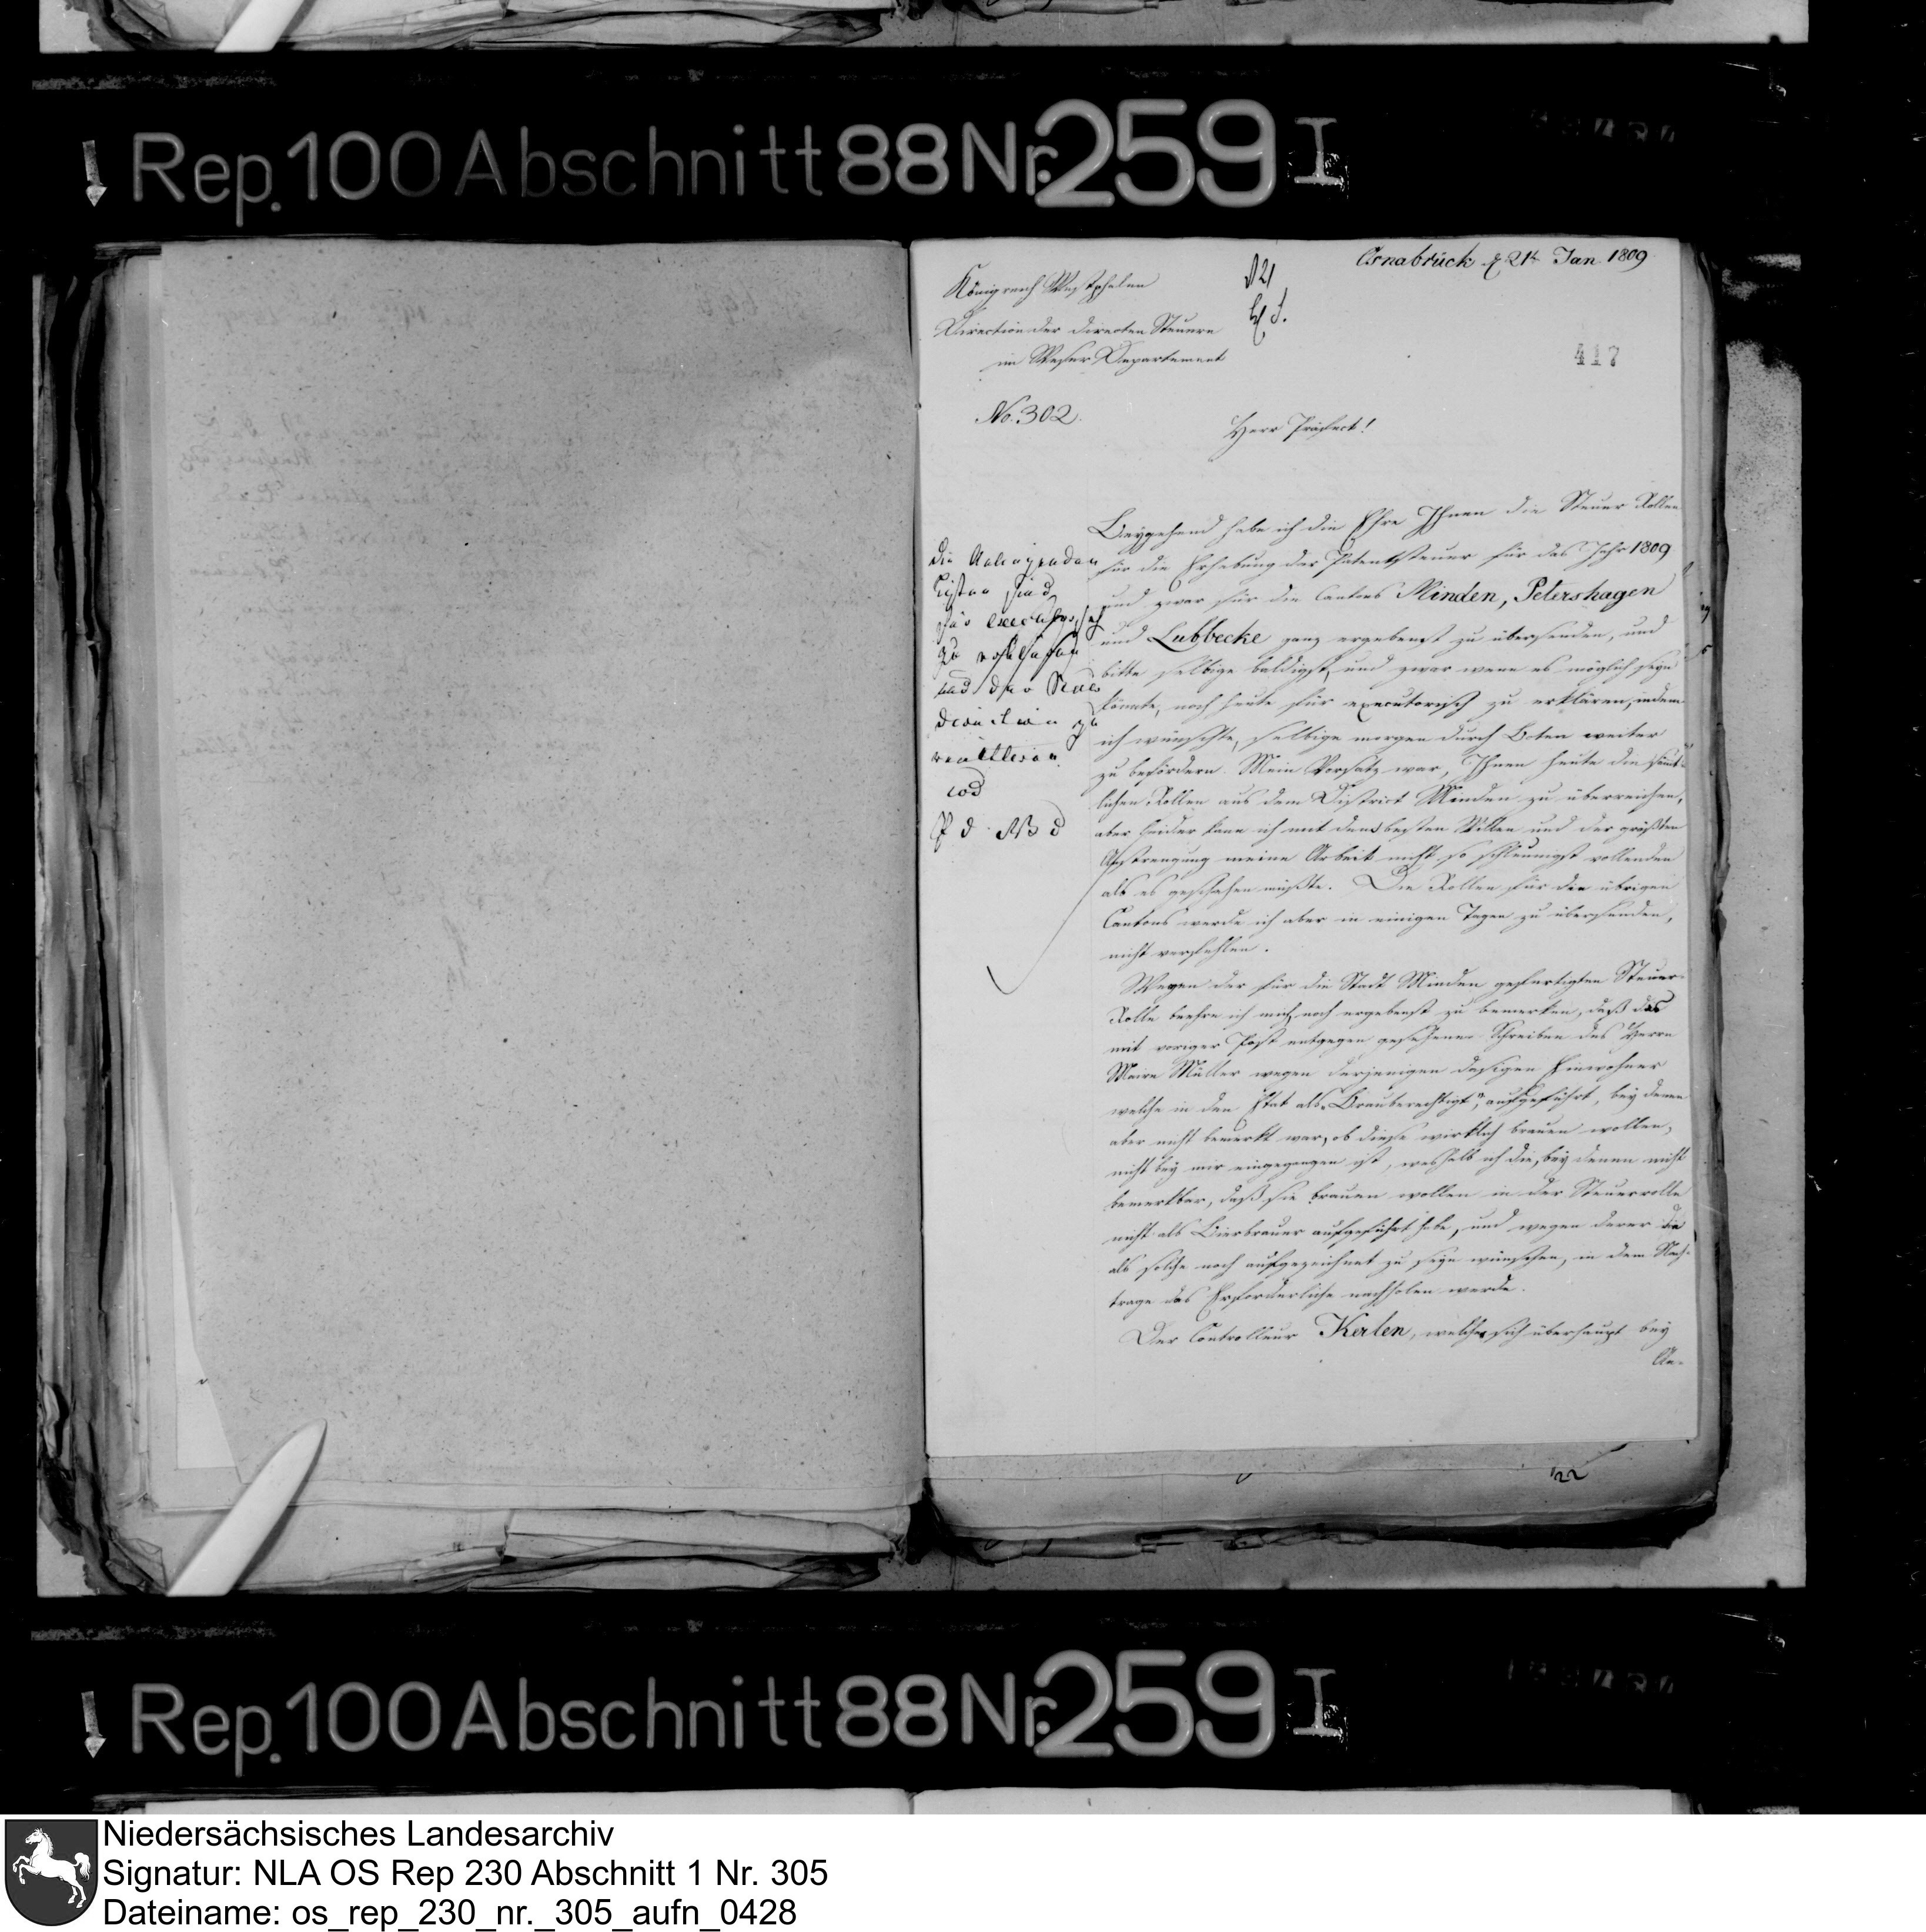 Rep. 100 Abschnitt 88 Nr. 259 I
Osnabrück d 21t Jan 1809
Königreich Westphalen
Direction der directen Steuern
im Weser Departement
No. 302.
417
Herr Präfect!
Beygehend habe ich die Ehre Ihnen die Steuer Rollen
für die Erhebung der Patentsteuer für das Jahr 1809
und zwar für die Cantons Minden, Petershagen
und Lubbecke ganz ergebenst zu übersenden, und
bitte selbige baldigst, und zwar wenn es möglich seyn
könnte, noch heute für executorisch zu erklären, indem
ich wünschte, selbige morgen durch Boten weiter
zu befördern. Mein Vorsatz war, Ihnen heute die sämt-
lichen Rollen aus dem District Minden zu überreichen,
aber leider kann ich mit dem besten Willen und der größten
Anstrengung meine Arbeit nicht so schleunigst vollenden
als es geschehen müßte. Die Rollen für die übrigen
Cantons werde ich aber in einigen Tagen zu übersenden,
nicht verfehlen.
Wegen der für die Stadt Minden gefertigten Steuer-
Rolle beehre ich mich noch ergebenst zu bemerken, daß das
mit voriger Post entgegen gesehene Schreiben des Herrn
Maire Müller wegen derjenigen dasigen Einwohner
welche in den Etat als „Brauberechtigt“, aufgeführt, bey denen
aber nicht bemerkt war, ob diese wirklich brauen wollen,
nicht bey mir eingegangen ist, weshalb ich die, bey denen nicht
bemerkbar, daß sie brauen wollen in der Steuerrolle
nicht als Bierbrauer aufgeführt habe, und wegen derer die
als solche noch aufgezeichnet zu seyn wünschen, in dem Nach-
trage das Erforderliche nachholen werde.
Der Controlleur Kerlen, welcher sich überhaupt bey
An-
die Anliegenden
Listen sind
für executorisch
zu erklären
und der Steuer
direction zu
22
Rep. 100 Abschnitt 88 Nr. 259 I
Niedersächsisches Landesarchiv
Signatur: NLA OS Rep 230 Abschnitt 1 Nr. 305
Dateiname: os_rep_230_nr._305_aufn_0428